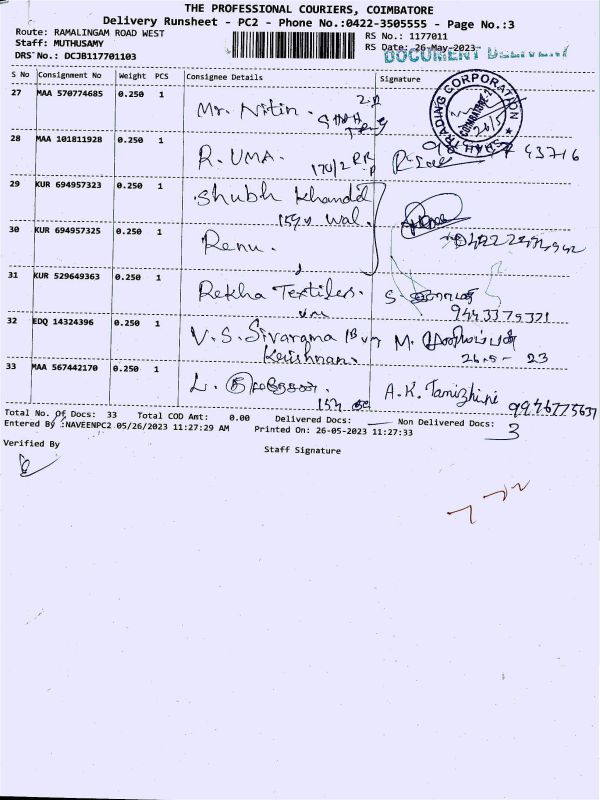 THE PROFESSIONAL COURIERS, COIMBATORE
Delivery Runsheet - PC2 - Phone No.:0422-3505555 - Page No.:3
Route: RAMALINGAM ROAD WEST
RS No.: 1177011
Staff: MUTHUSAMY
RS Date: 26-May-2023
DRS No.: DCJB117701103
DOCUMENT DELIVERY
S No Consignment No Weight PCS Consignee Details Signature
27 MAA 570774685 0.250 1 Mr. Nitin.
TRADING CORPORATION COIMBATORE-2 26/5
28 MAA 101811928 0.250 1 R. UMA. 170/2 43716
29 KUR 694957323 0.250 1 Shubh Khandel
wal.
30 KUR 694957325 0.250 1 Renu.
31 KUR 529649363 0.250 1 Rekha Textiles. S.
9443375321
32 EDQ 14324396 0.250 1 V. S. Sivarama M.
Krishnan. 26.5 - 23
33 MAA 567442170 0.250 1 L. A.K. Tamizhini
Total No. Of Docs: 33 Total COD Amt: 0.00 Delivered Docs: Non Delivered Docs: 3
Entered By :NAVEENPC2 05/26/2023 11:27:29 AM Printed On: 26-05-2023 11:27:33
Verified By
Staff Signature